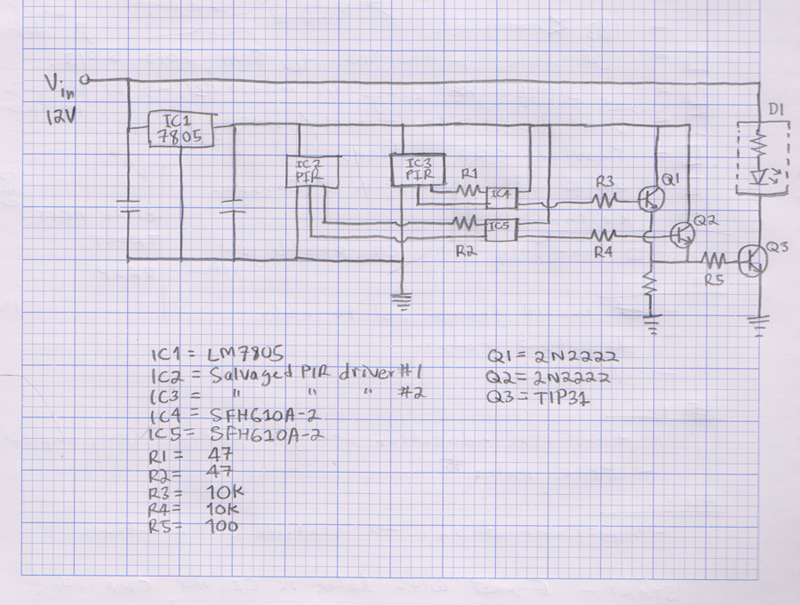 Vin
12V
IC1
7805
IC2
PIR
IC3
PIR
R1
IC4
R2
IC5
R3
R4
Q1
Q2
R5
Q3
D1
IC1 = LM7805
IC2 = Salvaged PIR driver #1
IC3 = " " " #2
IC4 = SFH610A-2
IC5 = SFH610A-2
R1 = 47
R2 = 47
R3 = 10K
R4 = 10K
R5 = 100
Q1 = 2N2222
Q2 = 2N2222
Q3 = TIP31